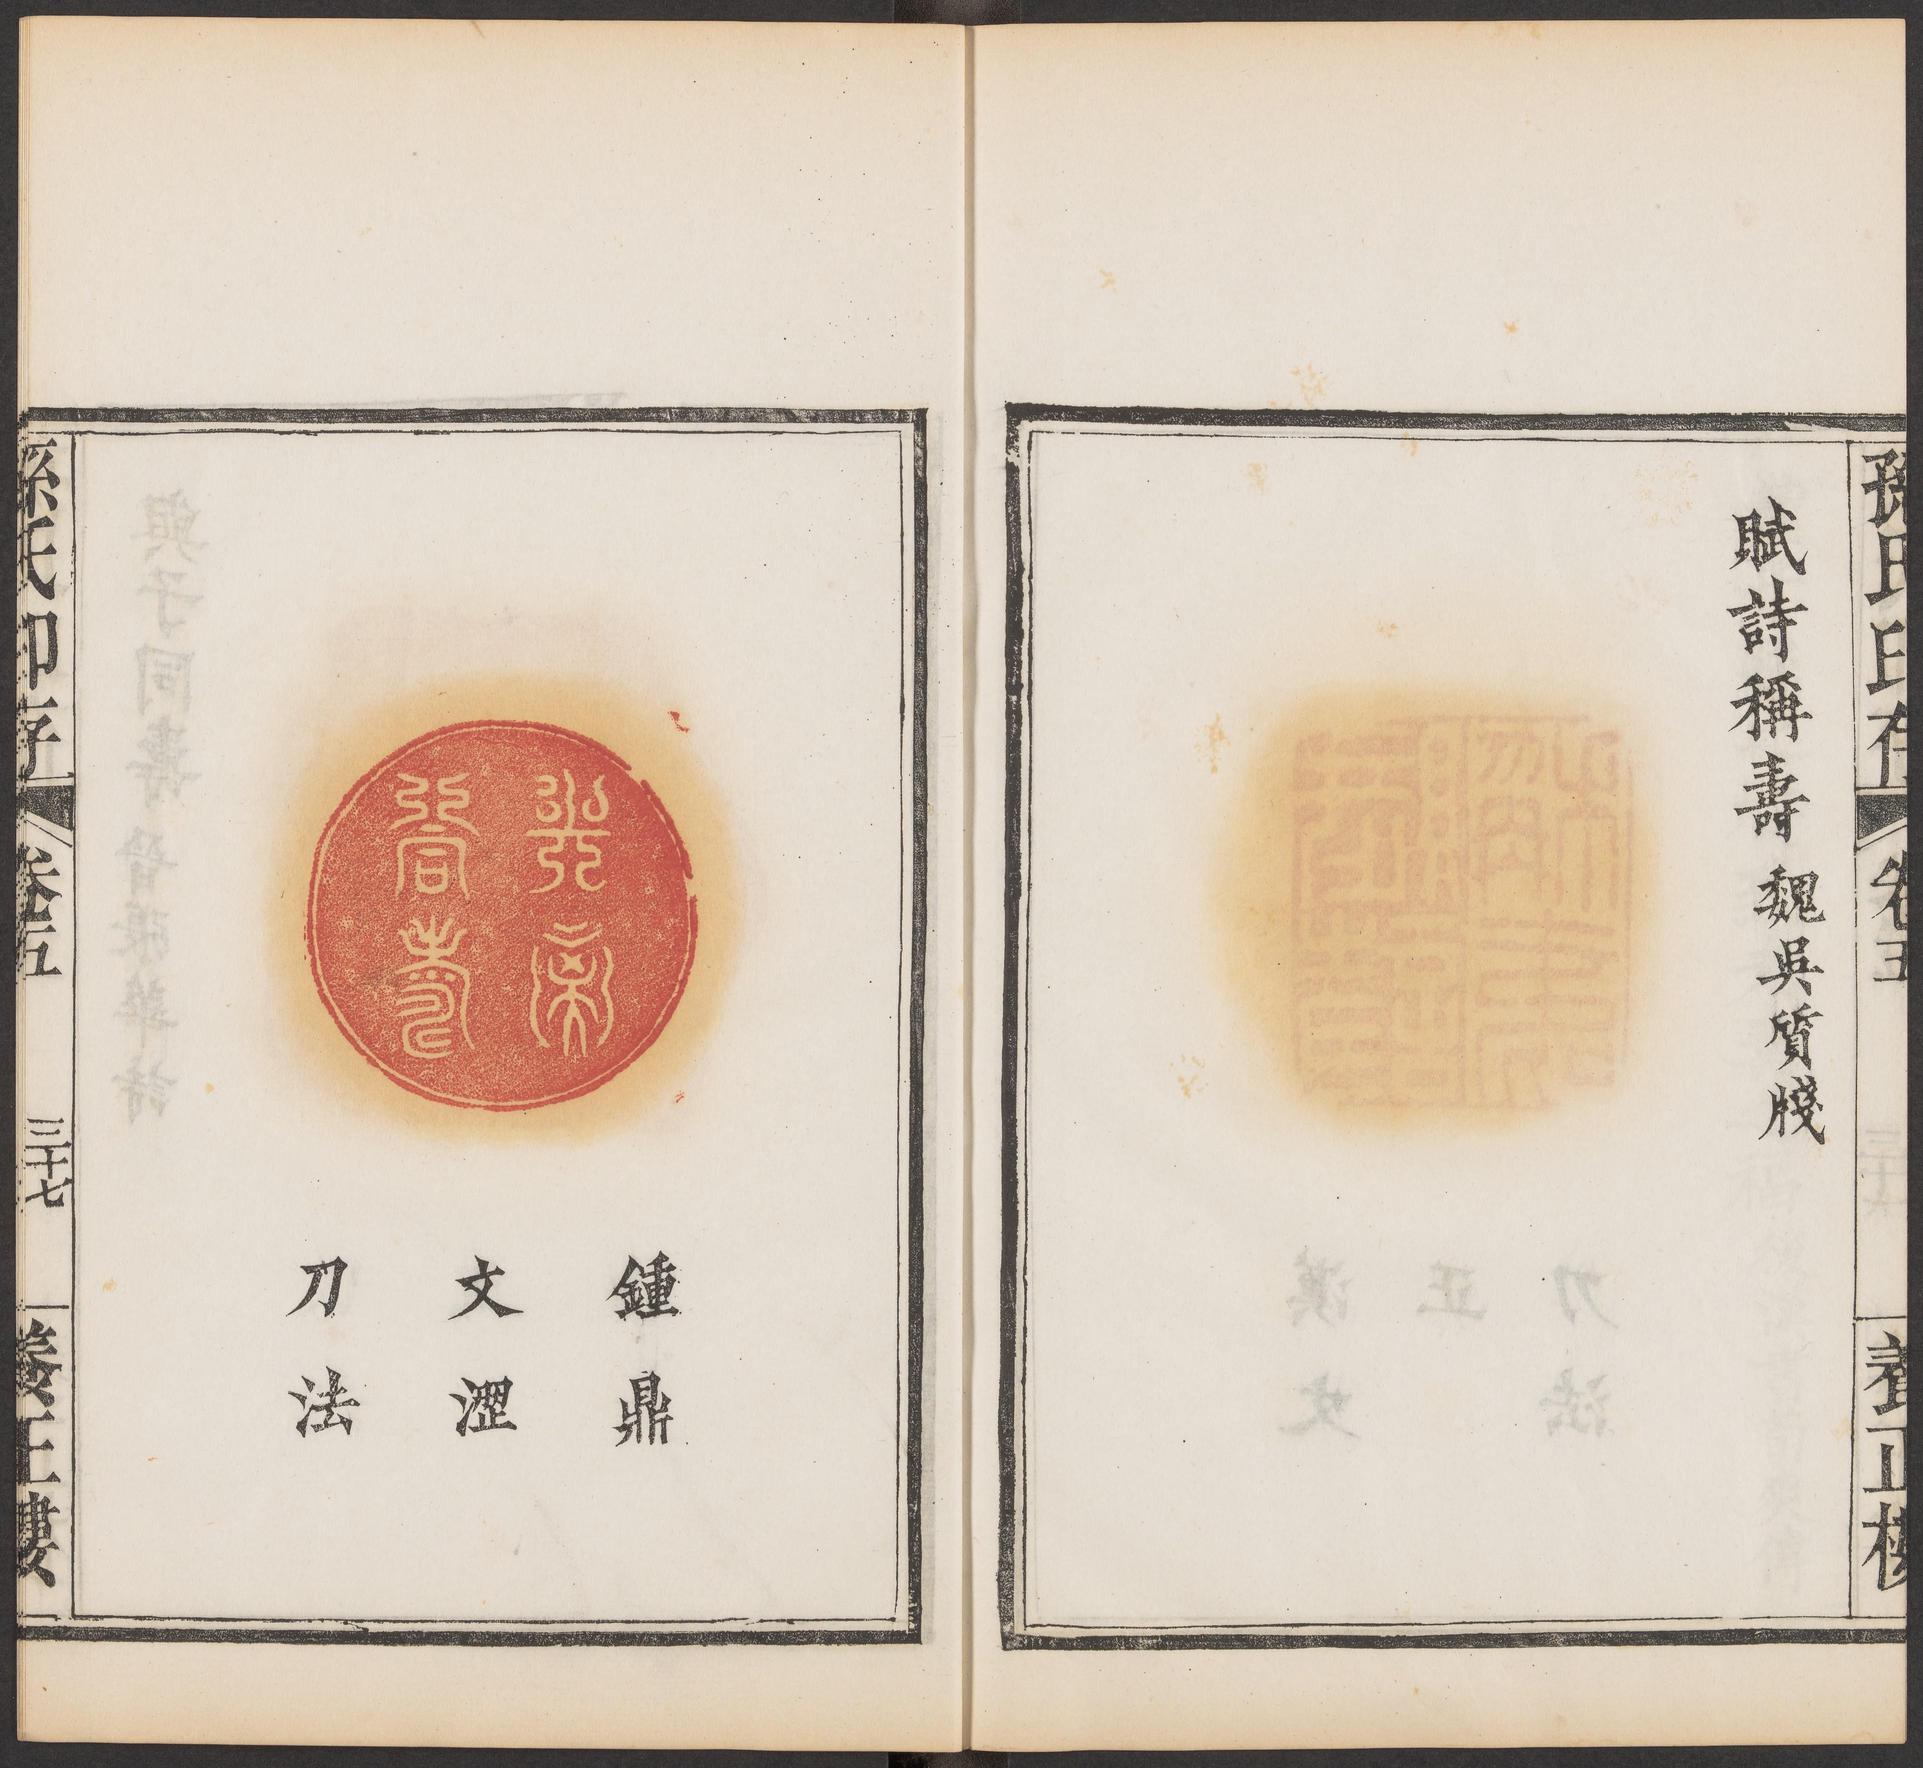 孫氏印存 卷五 養正樓
賦詩稱壽 魏吳質牋
鍾鼎
文澀
刀法
孫氏印存 卷五 三十七 養正樓